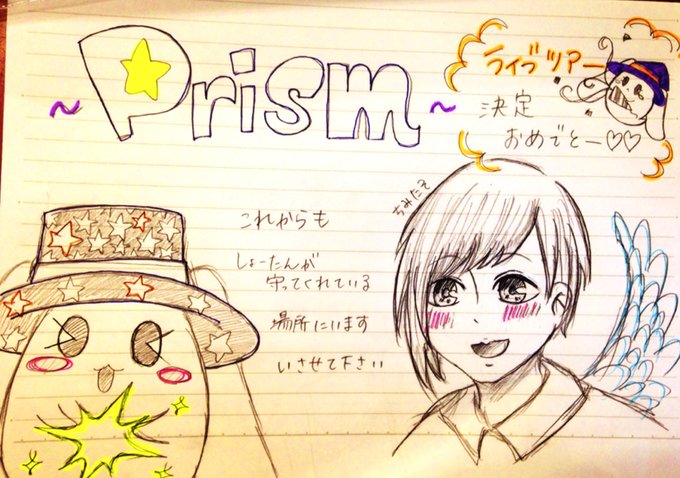 ~Prism~
ライブツアー
決定
おめでとー♡♡
これからも
しょーたんが
守ってくれている
場所にいます
いさせて下さい